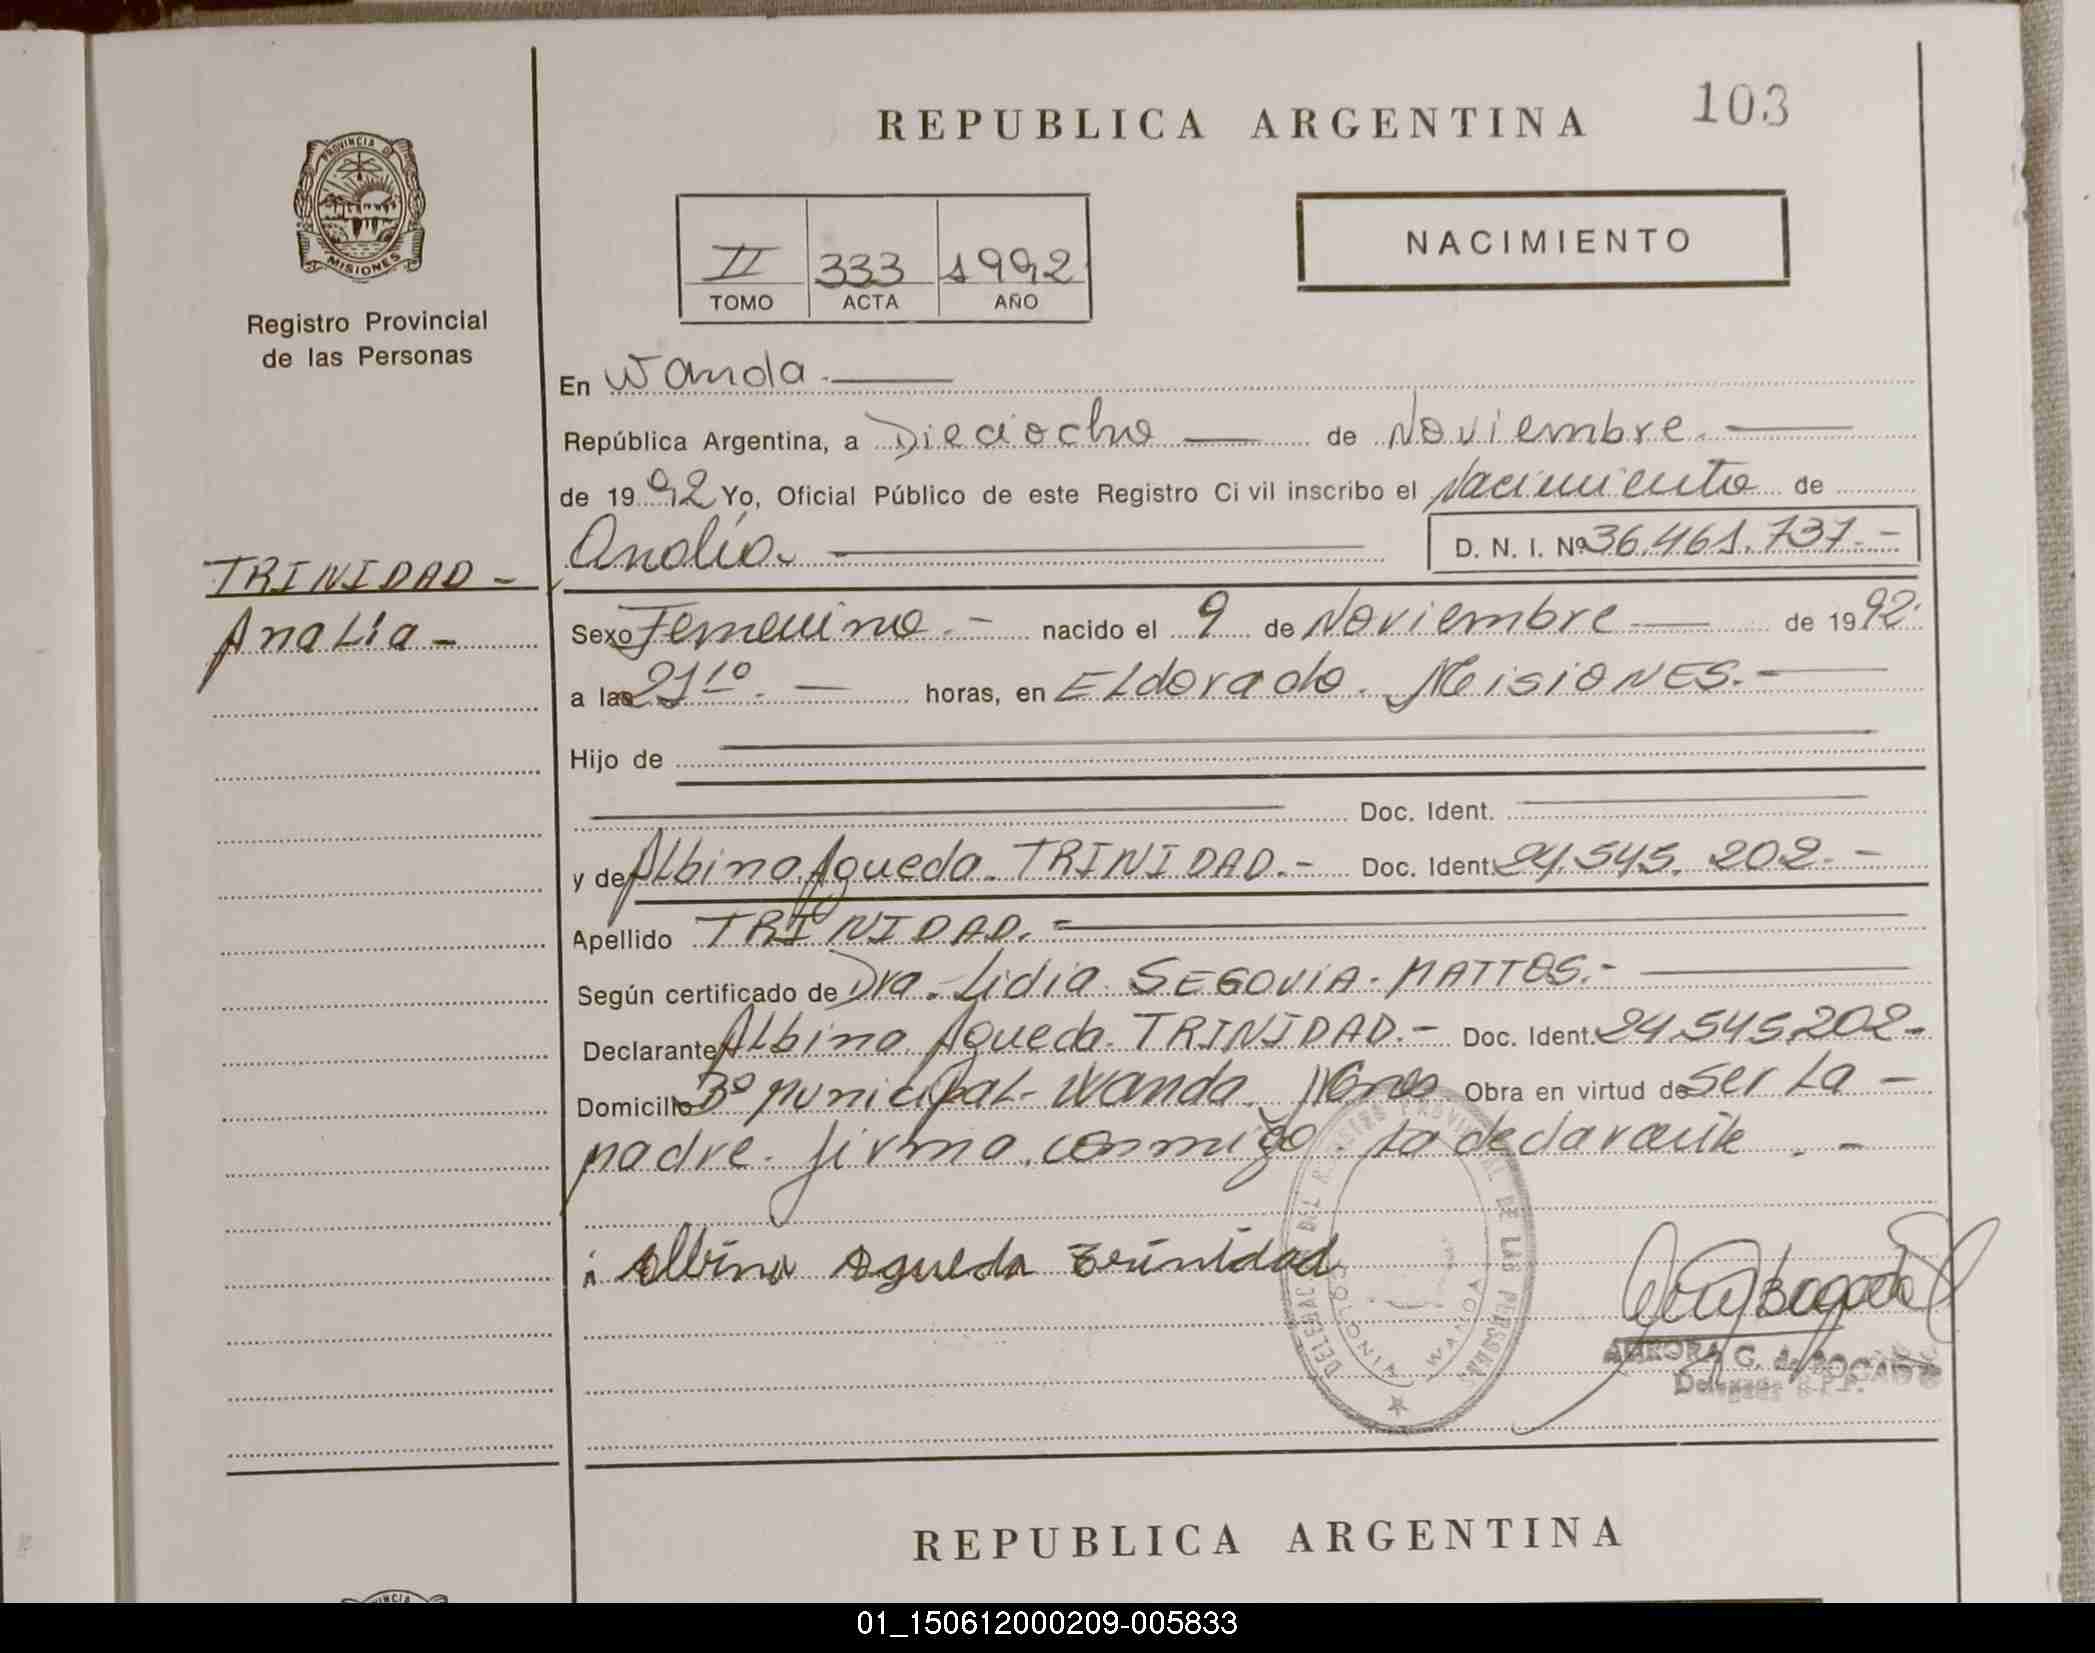 103
REPUBLICA ARGENTINA
PROVINCIA DE
MISIONES
Registro Provincial
de las Personas
II 333 1992
TOMO ACTA AÑO
NACIMIENTO
En Wanda.
República Argentina, a Dieciocho de Noviembre.
de 1992 Yo, Oficial Público de este Registro Ci vil inscribo el Nacimiento de
Analía. D. N. I. Nº 36.461.737.-
TRINIDAD -
Analia -
Sexo Femenino.- nacido el 9 de Noviembre de 1992.
a las 21 10. - horas, en Eldorado. Misiones.-
Hijo de
Doc. Ident.
y de Albina Agueda. TRINIDAD.- Doc. Ident. 24.545.202.-
Apellido TRINIDAD.-
Según certificado de Dra. Lidia SEGOVIA. MATTOS.-
Declarante Albina Agueda. TRINIDAD.- Doc. Ident. 24.545.202-
Domicilio 3º Municipal- Wanda. Mnes Obra en virtud de ser la -
madre. firma conmigo la declarante . -
Albina Agueda Trinidad
DEL REGISTRO PROVINCIAL DE LAS PERSONAS
COLONIA WANDA
Bogado
AURORA G. de BOGADO
Delegada R.P.P.
REPUBLICA ARGENTINA
01_150612000209-005833